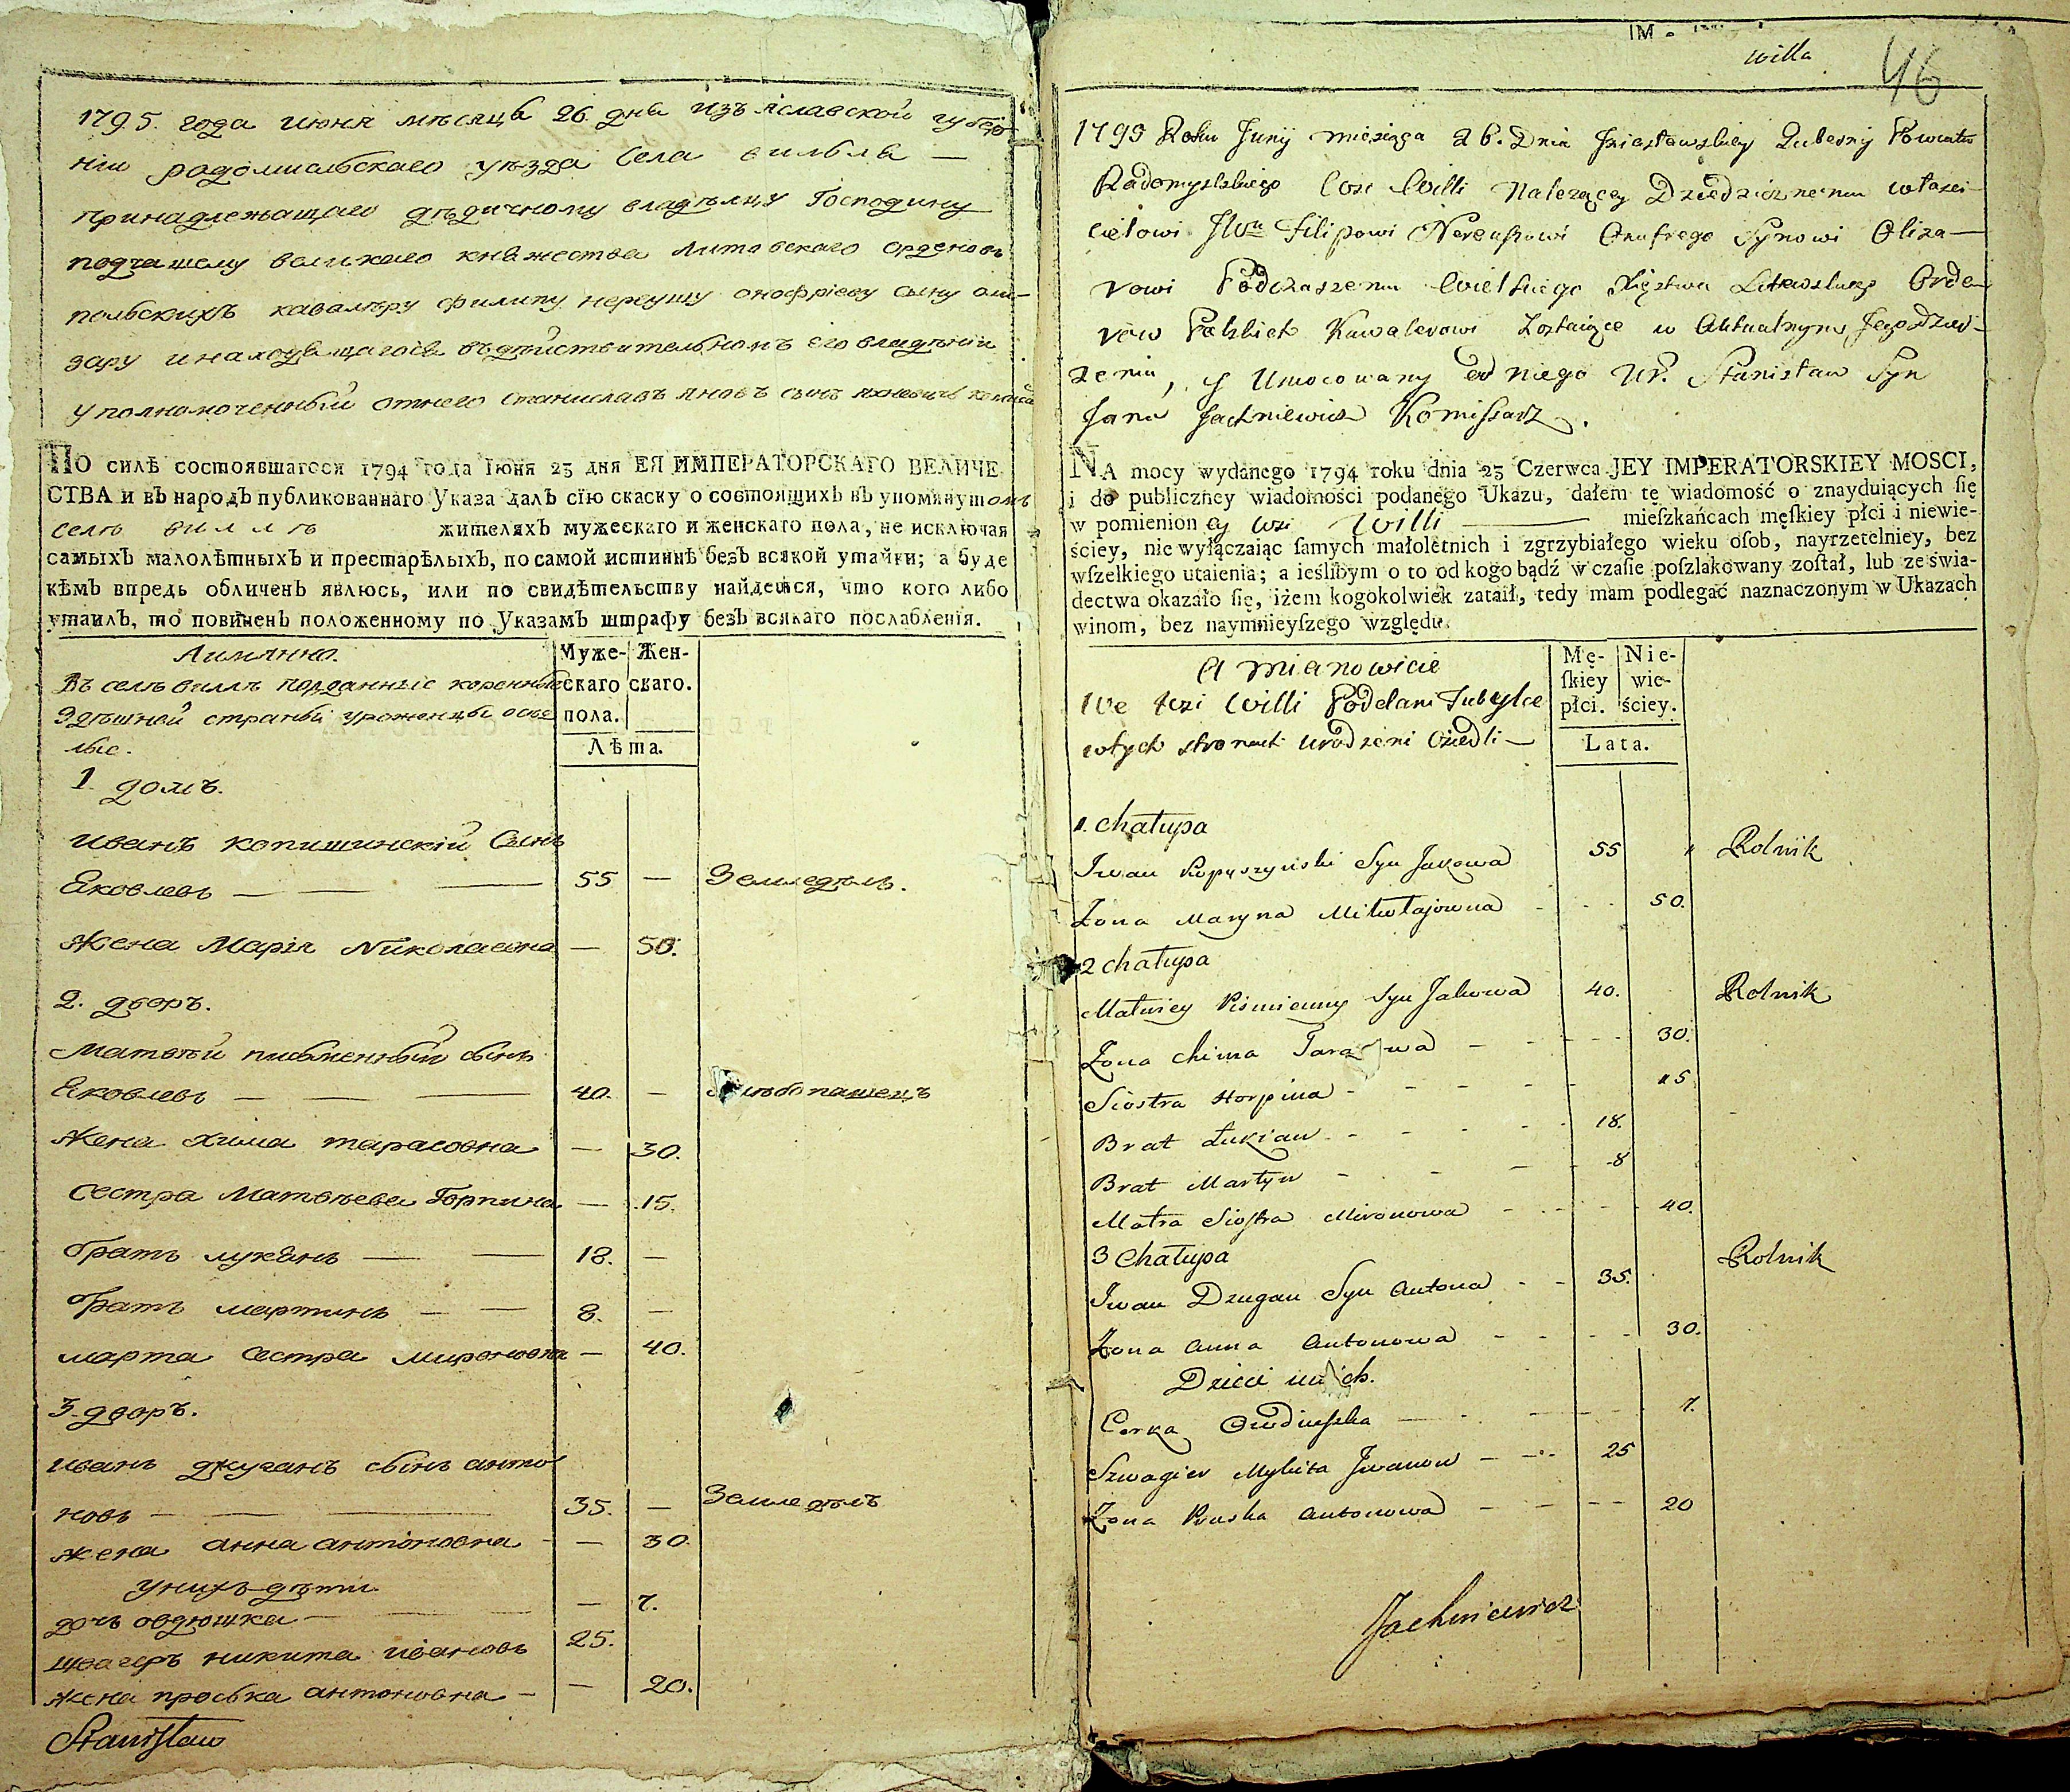 1795. года июня мѣсяца 26 дня Изъяславской губер
ніи радомисльскаго уѣзда села вильля —
принадлежащаго дѣдичному владѣлцу Господину
подчашему великаго княжества литовскаго орденовъ
польскихъ кавалѣру филипу нереушу онофріеву сыну оли-
зару инаходящагося въдѣйствительномъ его владѣніи
уполномоченный отнего станиславъ яновъ сынъ
ПО силѣ состоявшагося 1794 года Іюня 23 дня ЕЯ ИМПЕРАТОРСКАГО ВЕЛИЧЕ
СТВА и въ народъ публикованнаго Указа далъ сїю скаску о состоящихъ въ упомянутомъ
селѣ виллѣ жителяхъ мужескаго и женскаго пола, не исключая
самыхъ малолѣтныхъ и престарѣлыхъ, по самой истиннѣ безъ всякой утайки; а буде
кѣмъ впредь обличенъ явлюсь, или по свидѣтельству найдется, что кого либо
утаилъ, то повиненъ положенному по Указамъ штрафу безъ всякаго послабленія.
Аимянно.
Въ селѣ виллѣ подданныіе коренные
здѣшней страны уроженцы осѣд
лыс.
Муже- Жен-
скаго скаго.
пола.
Лѣта.
1. домъ.
иванъ копишинскій Сынъ
Яковлевъ — — — 55 — Земледѣлъ.
жена Марія Николаевна — 50.
2. дворъ.
матвѣй письменный сынъ
Яковлевъ — — — 40. — хлѣбопашецъ
жена хима тарасовна — 30.
сестра матвѣева Горпина — 15.
братъ лукянъ — — 18. —
братъ мартинъ — — 8. —
марта сестра мироновна — 40.
3. дворъ.
иванъ джуганъ сынъ анто
новъ — — — 35. — Земледѣлъ
жена анна антоновна - — 30.
унихъ дѣти
дочь овдюшка — — — 7.
швагеръ никита ивановъ 25.
жена проська антоновна — — 20.
Stanisław
willa
46
1795 Roku Junij miesiąca 26. Dnia Iziasławskiey Gubernij Powiatu
Radomyslskiego Wsi Willi Należącey Dziedzicznemu własci-
cielowi JWu Filipowi Nereuszowi Onufrego Synowi Oliza-
rowi Podczaszemu Wielkiego Xięztwa Litewskiego Orde-
row Polskich Kawalerowi zostaiące w Aktualnym Jego dzier-
zeniu, y Umocowany od niego Ur. Stanisław Syn
Jana Jachniewicz Komissarz.
NA mocy wydanego 1794 roku dnia 23 Czerwca JEY IMPERATORSKIEY MOSCI,
i do publiczney wiadomości podanego Ukazu, dałem tę wiadomość o znayduiących ſię
w pomienion ey Wsi Willi — mieſzkańcach męſkiey płci i niewie-
ściey, nie wyłączaiąc ſamych małoletnich i zgrzybiałego wieku oſob, nayrzetelniey, bez
wſzelkiego utaienia; a ieślibym o to od kogo bądź w czaſie poſzlakowany zoſtał, lub ze świa-
dectwa okazało ſię, iżem kogokolwiek zataił, tedy mam podlegać naznaczonym w Ukazach
winom, bez naymnieyſzego względu.
A mianowicie
We Wsi Willi Poddani Tubylce
wtych stronach urodzeni Osiedli —
Mę- Nie-
ſkiey wie-
płci. ściey.
Lata.
1. Chałupa
Iwan Kopyszyński Syn Jakowa 55 " Rolnik
Żona Maryna Mikołajowna - - - 50.
2 chałupa
Matwiey Piśmienny Syn Jakowa 40. Rolnik
Żona Chima Tarasowa - - - - 30.
Siostra Horpina - - - - - 15.
Brat Łukian - - - - - 18.
Brat Martyn - - - - 8
Matra Siostra Mironowa - - - - 40.
3 Chałupa
Iwan Dzugan Syn Antona - - 35. Rolnik
Żona Anna Antonowa - - - - 30.
Dzieci unich.
Corka Owdiuszka — - - - - 7.
Szwagier Mykita Iwanow - - - 25
Żona Pruska Antonowa - - - - 20
Jachniewicz